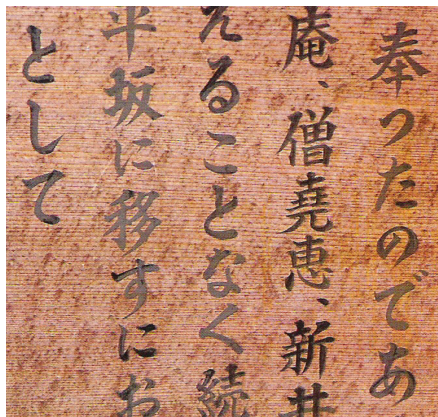 奉つたのであ
庵、僧堯恵、新井
えることなく続
平坂に移すにお
として